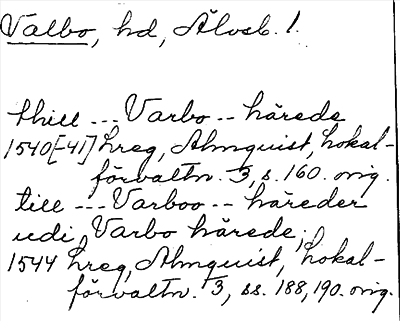 Valbo, hd, Älvsb. l.
thill --- Varbo -- härede
1540[-41] hreg, Almquist, Lokal-
förvaltn. 3, s. 160. orig.
till --- Varboo -- häreder
udi Varbo härede;
1544 hreg, Almquist, Lokal-
förvaltn. 3, ss. 188, 190. orig.